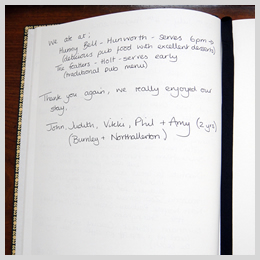 We ate at:
Hunny Bell - Hunworth - serves 6pm →
(delicious pub food with excellent desserts)
The Feathers - Holt - serves early
(traditional pub menu)
Thank you again, we really enjoyed our
stay.
John, Judith, Vikki, Phil + Amy (2 yrs)
(Burnley + Northallerton)